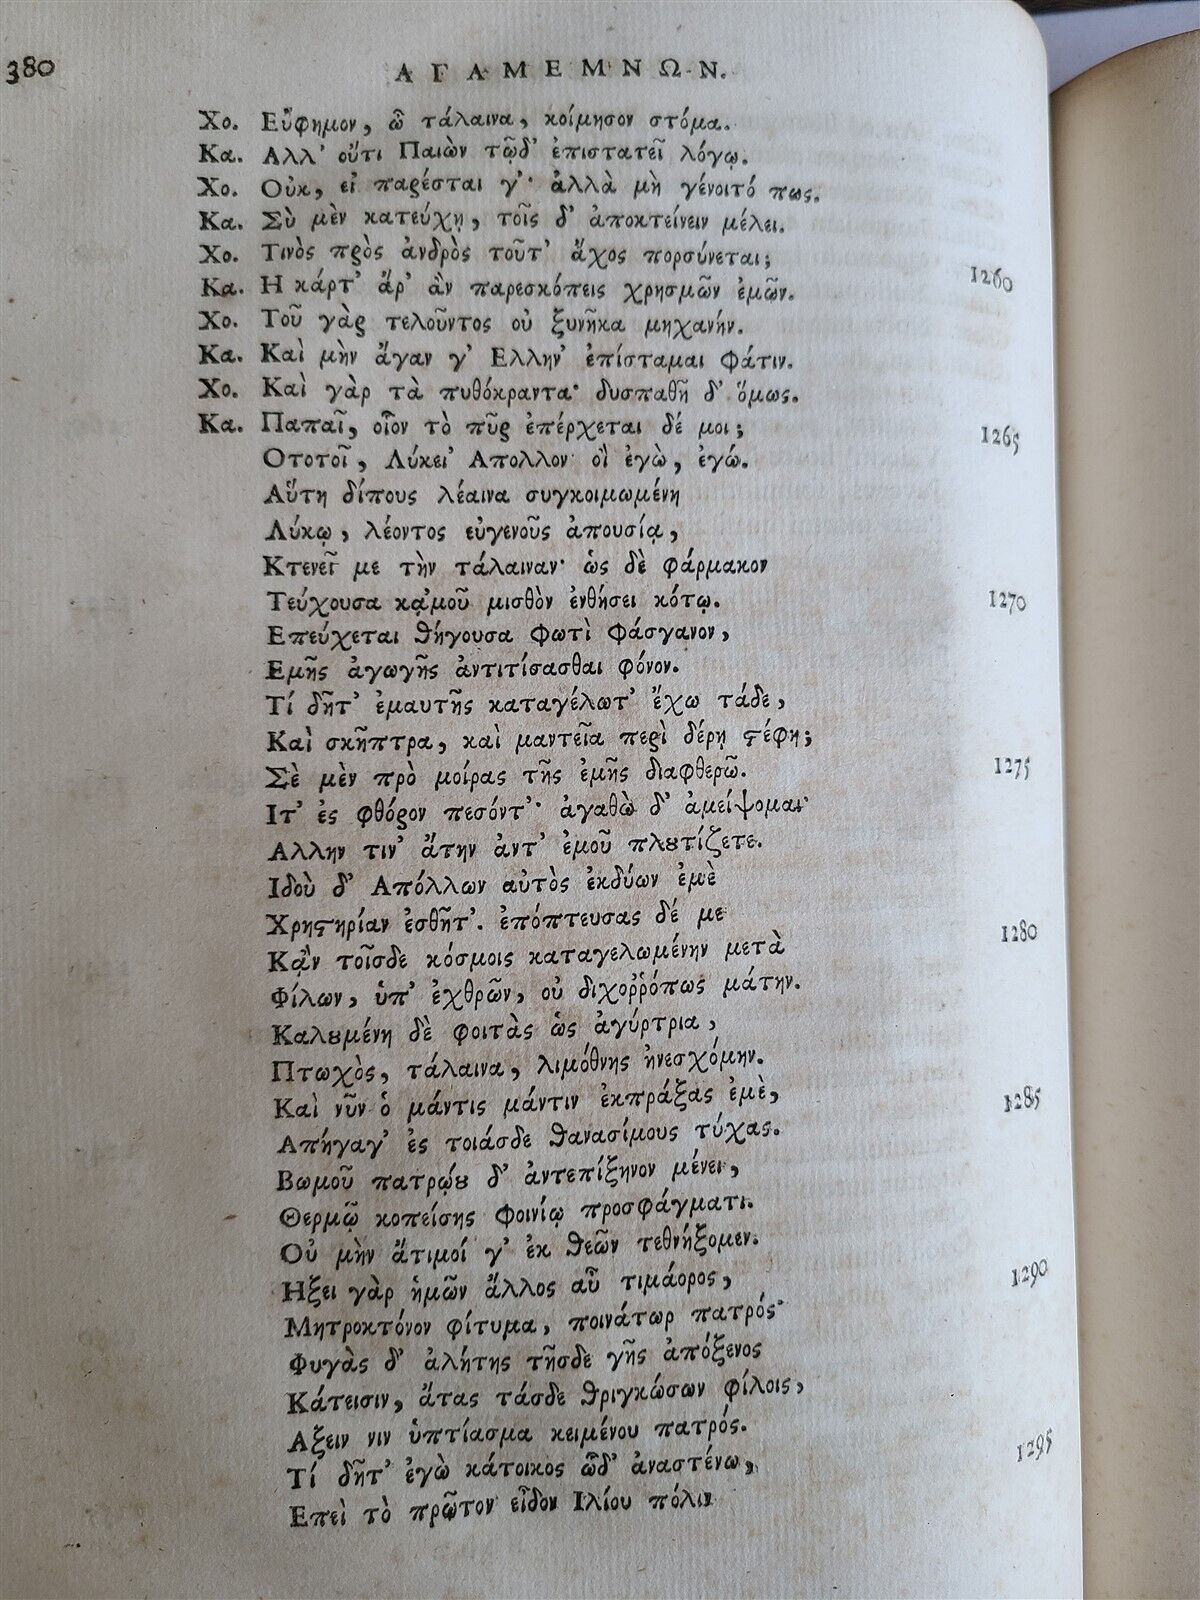 380
ΑΓΑΜΕΜΝΩΝ.
Χο. Εὔφημον, ὦ τάλαινα, κοίμησον στόμα.
Κα. Αλλ' οὔτι Παιὼν τῷδ' ἐπιστατεῖ λόγῳ.
Χο. Οὐκ, εἰ παρέσται γ'· ἀλλὰ μὴ γένοιτό πως.
Κα. Σὺ μὲν κατεύχῃ, τοῖς δ' ἀποκτείνειν μέλει.
Χο. Τινὸς πρὸς ἀνδρὸς τοῦτ' ἄχος πορσύνεται;
Κα. Η κάρτ' ἄρ' ἂν παρεσκόπεις χρησμῶν ἐμῶν. 1260
Χο. Τοῦ γὰρ τελοῦντος οὐ ξυνῆκα μηχανήν.
Κα. Καὶ μὴν ἄγαν γ' Ελλην' ἐπίσταμαι φάτιν.
Χο. Καὶ γὰρ τὰ πυθόκραντα· δυσπαθῆ δ' ὅμως.
Κα. Παπαῖ, οἷον τὸ πῦρ ἐπέρχεται δέ μοι; 1265
Οτοτοῖ, Λύκει' Απολλον· οἲ ἐγὼ, ἐγώ.
Αὕτη δίπους λέαινα συγκοιμωμένη
Λύκῳ, λέοντος εὐγενοῦς ἀπουσίᾳ,
Κτενεῖ με τὴν τάλαιναν· ὡς δὲ φάρμακον
Τεύχουσα κᾀμοῦ μισθὸν ἐνθήσει κότῳ. 1270
Επεύχεται θήγουσα φωτὶ φάσγανον,
Εμῆς ἀγωγῆς ἀντιτίσασθαι φόνον.
Τί δῆτ' ἐμαυτῆς καταγέλωτ' ἔχω τάδε,
Καὶ σκῆπτρα, καὶ μαντεῖα περὶ δέρῃ ϛέφη;
Σὲ μὲν πρὸ μοίρας τῆς ἐμῆς διαφθερῶ. 1275
Ιτ' ἐς φθόρον πεσόντ'· ἀγαθὼ δ' ἀμείψομαι·
Αλλην τιν' ἄτην ἀντ' ἐμοῦ πλȣτίζετε.
Ιδοὺ δ' Απόλλων αὐτὸς ἐκδύων ἐμὲ
Χρηϛηρίαν ἐσθῆτ'. ἐπόπτευσας δέ με
Κᾂν τοῖσδε κόσμοις καταγελωμένην μετὰ 1280
Φίλων, ὑπ' ἐχθρῶν, οὐ διχοῤῥόπως μάτην.
Καλȣμένη δὲ φοιτὰς ὡς ἀγύρτρια,
Πτωχὸς, τάλαινα, λιμόθνης ἠνεσχόμην.
Καὶ νῦν ὁ μάντις μάντιν ἐκπράξας ἐμὲ, 1285
Απήγαγ' ἐς τοιάσδε θανασίμους τύχας.
Βωμοῦ πατρῴȣ δ' ἀντεπίξηνον μένει,
Θερμῷ κοπείσης φοινίῳ προσφάγματι.
Οὐ μὴν ἄτιμοί γ' ἐκ θεῶν τεθνήξομεν.
Ηξει γὰρ ἡμῶν ἄλλος αὖ τιμάορος, 1290
Μητροκτόνον φίτυμα, ποινάτωρ πατρός·
Φυγὰς δ' ἀλήτης τῆσδε γῆς ἀπόξενος
Κάτεισιν, ἄτας τάσδε θριγκώσων φίλοις,
Αξειν νιν ὑπτίασμα κειμένου πατρός.
Τί δῆτ' ἐγὼ κάτοικος ὧδ' ἀναστένω, 1295
Επεὶ τὸ πρῶτον εἶδον Ιλίου πόλιν